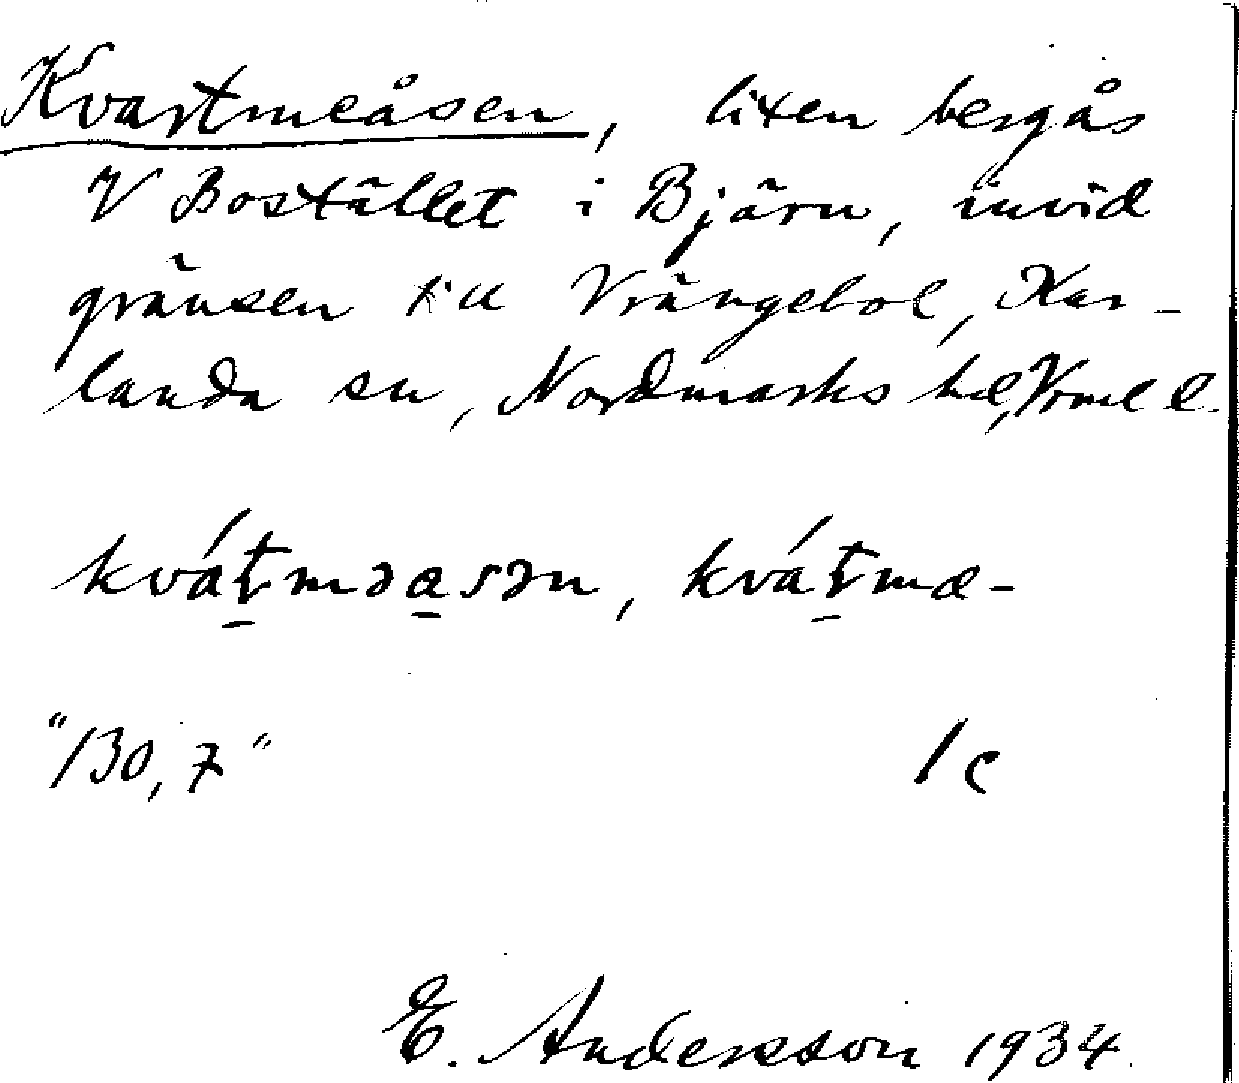 Kvartmeåsen, liten bergås
V Bostället i Bjärn, invid
gränsen till Vrängebol, Kar-
landa sn, Nordmarks hd, Vrml l.
kvát̠məa̠sən, kvát̠mə-
"130,7" 1c
E. Andersson 1934.